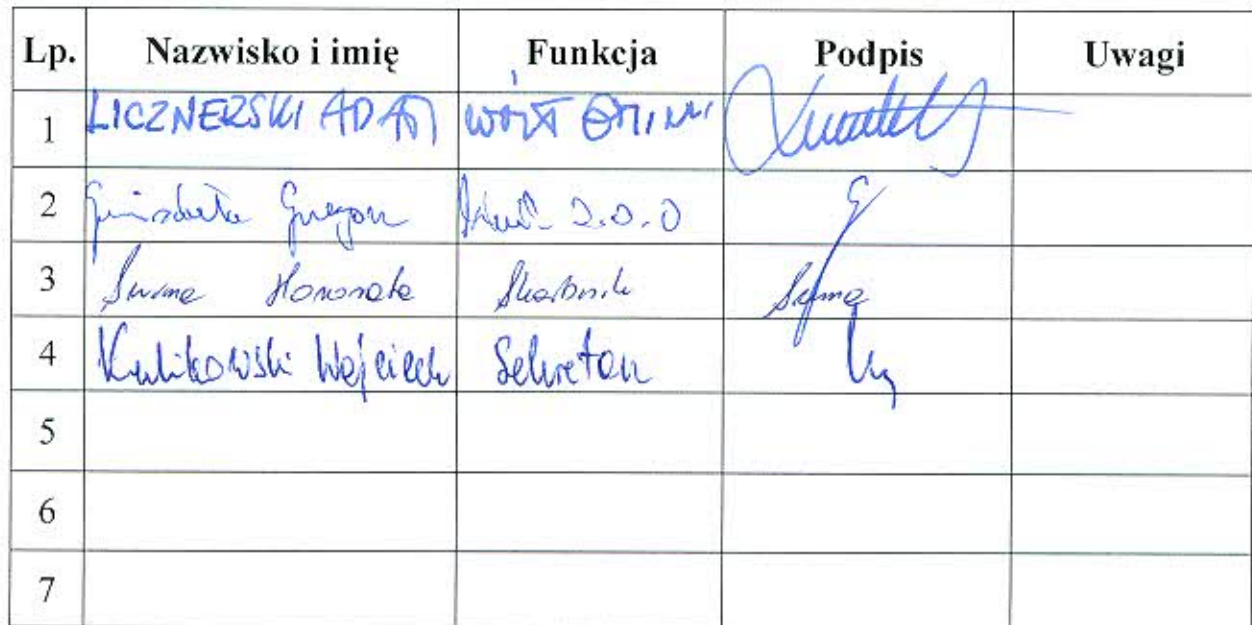 Lp. Nazwisko i imię Funkcja Podpis Uwagi
1 LICZNERSKI ADAM WÓJT GMINY
2
3 Suma Honorata Skarbnik Suma
4 Kulikowski Wojciech Sekretarz
5
6
7